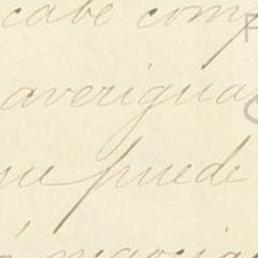 cabe comp
averigua
que puede